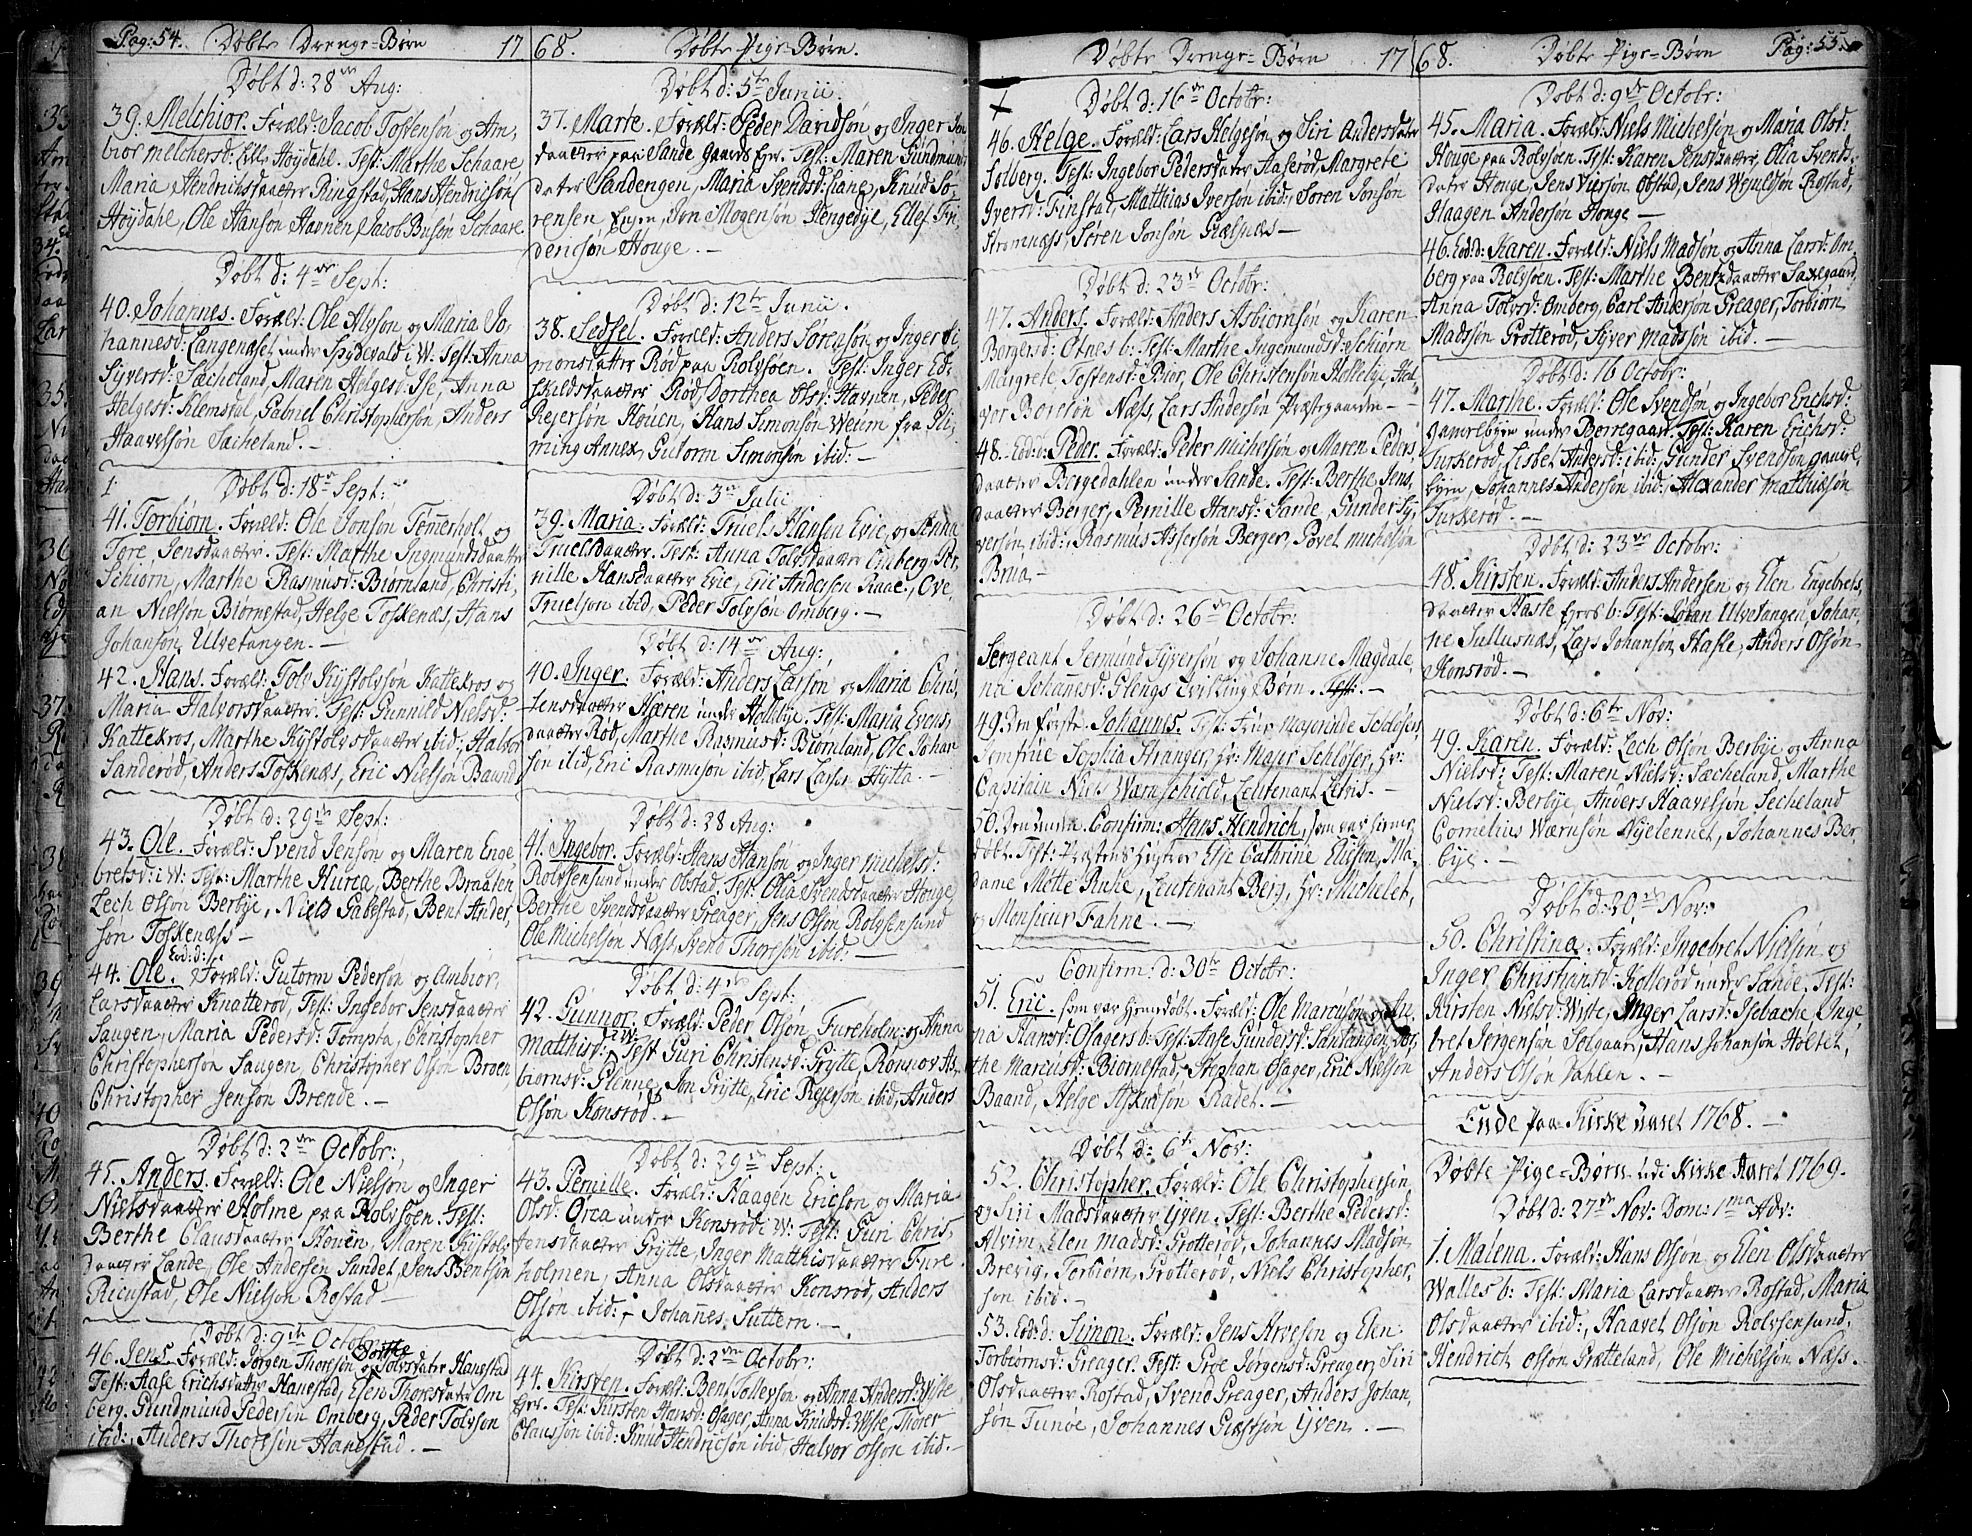 Pag: 54. Døbte Drenge-Børn 17
Døbt d: 28de Aug:
39. Melchior. Foræld: Jacob Tostensøn og Am,
bior Melchersd: Lille Høydahl. Test: Marthe Schaare
Maria Hendrichsdaatter Ringstad, Hans Hendricsøn
Høydahl, Ole Hanson Havnen, Jacob Busøn Schaare
Døbt d: 4de Sept:
40. Johannes. Foræld: Ole Alvson og Maria Jo,
hannesd: Langenæset under Spydevold i W: Test: Anna
Syversd: Sæcheland, Maren Helgesd: Ise, Anna
Helgesd: Klemsdal, Gabriel Christophersøn, Anders
Haavelsøn Sæcheland. –
Døbt d: 18de Sept:
41. Torbiørn. Foræld: Ole Jonsøn Temmerholt, og
Tore Jensdaatter. Test: Marthe Ingmundsdaatter
Schiørn, Marthe Rasmusd: Biørnland, Christi,
an Nielsøn Biørnestad, Helge Toskenæs, Hans
Johansøn Ulvetangen. –
42. Hans. Foræld: Tolv Kystolvsøn Kattekros og
Maria Halvorsdaatter. Test: Gunnild Nielsd:
Kattekros, Marthe Kystolvsdaatter ibid:, Halvor
Sanderød, Anders Toskenæs, Eric Nielsøn Baand
Døbt d: 29de Sept:
43. Ole. Foræld: Svend Jensøn og Maren Enge,
bretsd: i W: Test: Marthe Hurra, Berthe Braaten,
Lech Olsøn Berbye, Niels Gabestad, Bent Ander,
søn Toskenæss –
44. Eod: d: Ole. Foræld: Gutorm Pedersøn og Ambior
Larsdaatter Knatterød, Test: Ingebor Jensdaatter
Haugen, Maria Pedersd: Tompta, Christopher
Christophersøn Haugen, Christopher Olsøn Broen
Christopher Jensøn Brende. –
Døbt d: 2den Octobr:
45. Anders. Foræld: Ole Nielsøn og Inger
Nielsdaatter Holme paa Rolvsøen. Test:
Berthe Clausdaatter Houen, Maren Kystols,
daatter Lande, Ole Andersen Sandet, Jens Bentsøn
Rienstad, Ole Nielsøn Rostad –
Døbt d: 9de Octobr
46. Jens. Foræld: Jørgen Thoresøn og Dorthe Tolvsdater Hanestad
Test: Aase Erichsdater Hanestad, Elen Thoresdater Om,
berg, Gundmund Pedersøn Omberg, Peder Tolvson
ibid:, Anders Thoresøn Hanestad. –
68. Døbte Pige-Børn.
Døbt d: 5te Junii.
37. Marte. Foræld: Peder Davidsøn og Inger Jen
daatter paa Sande Gaards Eyr. Test: Maren Gundmunds
dater Sandengen, Maria Svendsd: Lane, Knud Sø,
rensen Engen, Jon Mogensøn Hengebye, Ellef Fri
derichsøn Houge. –
Døbt d: 12te Junii.
38. Sedsel. Foræld: Anders Sørensøn og Inger Si
monsdatter Rød paa Rolvsøen. Test: Inger Es,
kildsdaatter Rød, Dorthea Olsd: Havnen, Peder
Rejersøn Houen, Hans Simonsøn Weum fra Gli,
ming Annex, Gutorm Simonsøn ibid: –
Døbt d: 3de Julii
39. Maria. Foræld: Truels Hansen Evie, og Anna
Truelsdaatter. Test: Anna Tolvsdaatter Omberg, Per,
nille Hansdaatter Evie, Eric Andersen Raae, Ove
Truelsøn ibid, Peder Tolvsøn Omberg. –
Døbt d: 14de Aug:
40. Inger. Foræld: Anders Larsøn og Maria Chri,
stensdaatter Kiæren under Hollebye. Test: Maria Evens,
daatter Rød, Marthe Rasmusd: Biørnland, Ole Johan
søn ibid, Eric Rasmusøn ibid, Lars Larsen Hytta. –
Døbt d: 28 Aug:
41. Ingebor. Foræld: Hans Hansøn og Inger Michelsd:
Rolvsensund under Obstad, Test: Olia Svendsdaatter Houge,
Berthe Svendsdaatter Greager, Jens Olsøn Rolvsensund
Ole Michelsøn Næss, Svend Thoresøn ibid: –
Døbt d: 4de Sept:
42. Gunnor. Foræld: Peder Olsøn Fureholm: og Anna
Matthisd: i W: Test: Guri Christensd: Grytte, Ronnov As,
biørnsd: Glenne, Jon Grytte, Eric Rejersøn ibid, Anders
Olsøn Konsrød. –
Døbt d: 29de Sept:
43. Pernille. Foræld: Haagen Ericsøn og Maria
Olsd: Orca under Konsrød i W: Test: Guri Chris,
tensdaatter Grytte, Inger Matthisdaatter Fure,
holmen, Anna Olsdaatter Konsrød, Anders
Olsøn ibid:, Johannes Suttern. –
Døbt d: 2den Octobr:
44. Kirsten. Foræld: Bent Tollevsøn og Anna Andersd: Wiste
Eyer. Test: Kirsten Hansd: Osager, Anna Knudsd: Wiste, Thorer
Claussøn ibid: Knud Hendricsøn ibid, Halvor Olsøn ibid. –
Døbte Drenge-Børn 17
Døbt d: 16de Octobr:
46. Helge. Foræld: Lars Helgesøn og Siri Andersdater
Solberg. Test: Ingebor Pedersdater Haserød, Margrete
Iversd: Finstad, Matthias Iversøn ibid:, Søren Jonsøn
Stromnæss, Søren Jonsøn Giælsnæs –
Døbt d: 23de Octobr:
47. Anders. Foræld: Anders Asbiørnsen og Karen
Børgersd: Otnes b: Test: Marthe Ingemundsd: Schiørn
Margrete Testensd: Biør, Ole Christensøn Hollebye, Hal,
vor Boresøn Næss, Lars Andersøn Præstgaarden –
48. Eod: d: Peder. Foræld: Peder Michelsøn og Maren Peders,
daatter Bergedahlen under Sande. Test: Berthe Jens,
daatter Berger, Pernille Hansd: Sande, Gunder Sy,
versøn, ibid:, Rasmus Assersøn Berger, Povel Michelsøn
Brua –
Døbt d: 26de Octobr:
Sergeant Jermund Syversøn og Johanne Magdale,
na Johannesd: Glengs Tvilling Børn. –
49. Den første Johannes. Test: Frue Majorinde Schløser,
Jomfrue Sophia Stranger, Hr: Major Schløser, Hr:
Capitain Niels Wærnschiold, Leutenant Lewis. –
50. Den anden Confirm: Hans Hendrich, som var hiemme,
døbt. Test: Præstens Hustroe Else Cathrine Elieson, Ma,
dame Mette Ruhe, Leutenant Berg, Hr: Michelet,
og Monsieur Fahne. –
Confirm: d: 30te Octobr:
51. Eric, som var hjemdøbt. Foræld: Ole Marcusøn og An,
na Hansd: Osagersd: Test: Aase Gundersd: Santangen, Dor,
the Marcusd: Biørnestad, Stephan Osager, Eric Nielsøn
Baand, Helge Askildsøn Radet. –
Døbt d: 6te Nov:
52. Christopher. Foræld: Ole Christophersøn
og Siri Madsdaatter Yven. Test: Berthe Pedersd:
Alvim, Elen Madsd: Grotterød, Johannes Madsøn
Brevig, Torbiørn Grotterød, Niels Christopher,
søn ibid. –
53. Eod: d: Simon. Foræld: Jens Arvesøn og Elen
Torbiørnsd: Greager. Test: Groe Jørgensd: Greager, Siri
Olsdaatter Rostad, Svend Greager, Anders Johan,
søn Tunøe, Johannes Giestsøn Yven. –
68. Døbte Pige-Børn Pag: 55.
Døbt d: 9de Octobr:
45. Maria. Foræld: Niels Michelsøn og Maria Olsd:
Houge paa Rolvsøen. Test: Karen Jensdaatter, Olia Svends,
dater Houge, Jens Siersøn Obstad, Jens Wejuldsøn Rostad,
Haagen Andersøn Houge –
46. Eod: d: Karen. Foræld: Niels Madsøn og Anna Larsd: Om
berg paa Rolvsøen. Test: Marthe Bentzdaatter Saxegaard,
Anna Tolvsd: Omberg, Carl Andersøn Greager, Torbiørn
Madsøn Grotterød, Syver Madsøn ibid. –
Døbt d: 16 Octobr:
47. Marthe. Foræld: Ole Svendsøn og Ingebor Erichsd:
Gamelbyen under Borregaar. Test: Karen Erichsd:
Turkerød, Lisbet Andersd: ibid:, Gunder Svendsøn Gamel,
byen, Johannes Andersøn ibid:, Alexander Matthisøn
Turkerød. –
Døbt d: 23de Octobr:
48. Kirsten. Foræld: Anders Andersen og Elen Engebrets,
daatter Hasle Eyros b: Test: Johan Ulvetangen, Johan,
ne Sullusnæs, Lars Johansøn Hasle, Anders Olsøn
Konsrød. –
Døbt d: 6te Nov:
49. Karen. Foræld: Lech Olsøn Berbye og Anna
Nielsd: Test: Maren Nielsd: Sæcheland, Marthe
Nielsd: Berbye, Anders Haavelsøn Secheland
Cornelius Wærnsøn Nyelennet, Johannes Ber,
bye. –
Døbt d: 20de Nov:
50. Christina. Foræld: Ingebret Nielsøn og
Inger Christiansd: Kollerød under Sande. Test:
Kirsten Nilsd: Wiste, Inger Larsd: Isebache, Inge,
bret Jørgensøn Solgaard, Hans Johansøn Holtet,
Anders Olsøn Dahlen. –
Ende paa Kirke aaret 1768. –
Døbte Pige-Børn udi Kirke Aaret 1769.
Døbt d: 27de Nov: Dom: 1ma Adv:
1. Malena. Foræld: Hans Olsøn og Elen Olsdaatter
Walles b: Test: Maria Larsdaatter Rostad, Maria
Olsdaatter ibid:, Haavel Olsøn Rolvsensund,
Hendrich Olsøn Grætteland, Ole Michelsøn Næss. –